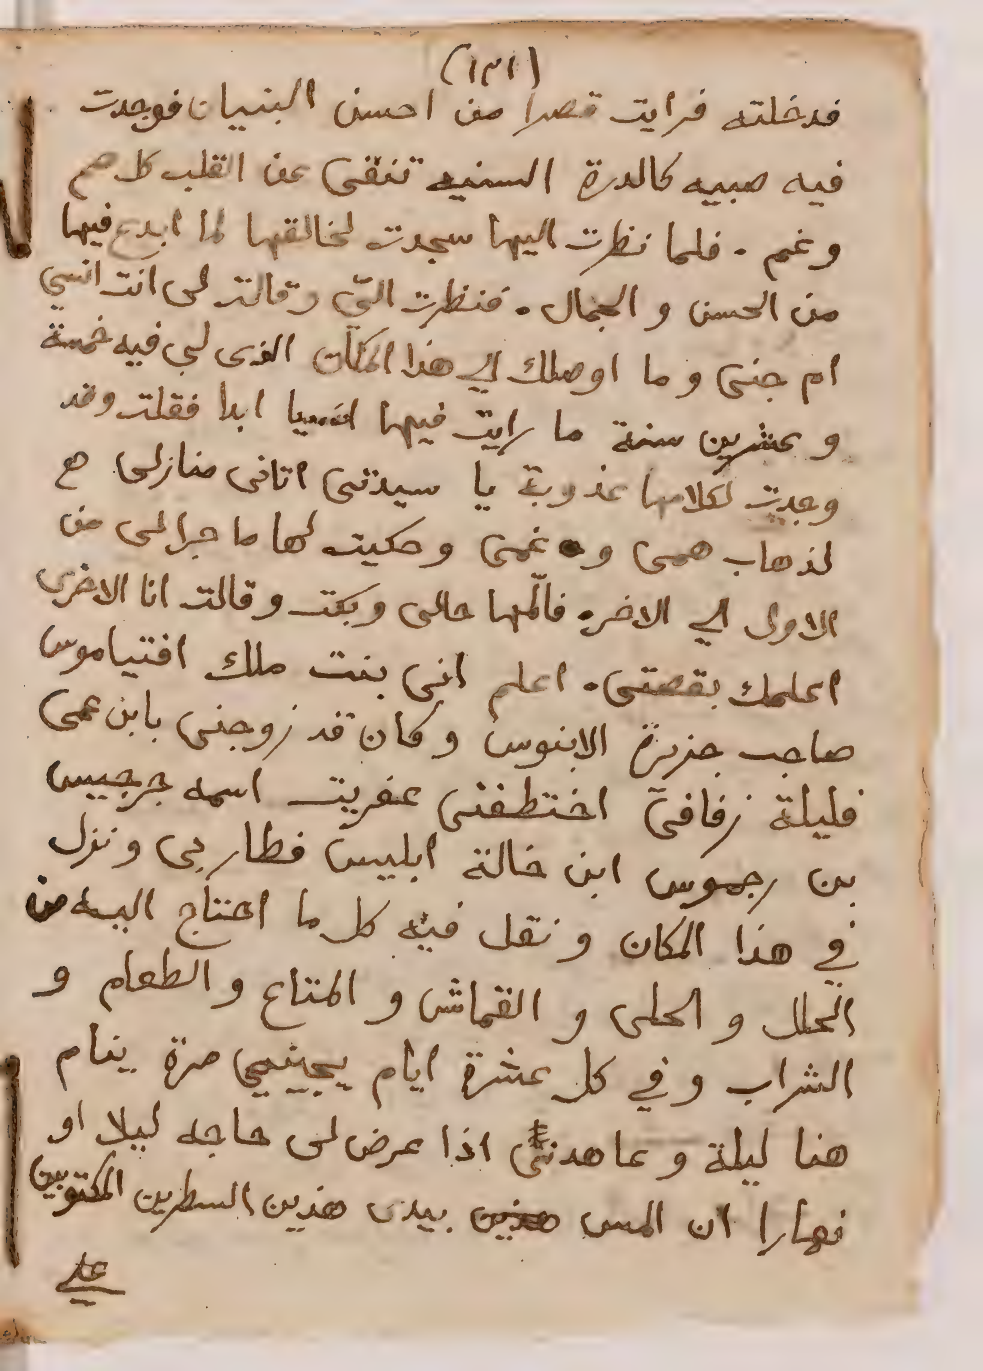 (١٣١)
فدخلته فرايت قصرا من احسن البنيان فوجدت
فيه صبيه كالدرة السنيه تنقى عن القلب كل هم
وغم . فلما نظرت اليها سجدت لخالقها لما ابدع فيها
من الحسن و الجمال . فنظرت اليّ وقالت لى انت انسي
ام جنى و ما اوصلك الي هذا المكان الذى لى فيه خمسة
و عشرين سنة ما رايت فيها انسيا ابدا فقلت وقد
وجدت لكلامها عذوبة يا سيدتى اتانى منازلى هع
لذهاب همى و غمى وحكيت لها ما جرا لى من
الاول الي الاخر . فالمها حالى وبكت وقالت انا الاخرى
اعلمك بقصتى . اعلم انى بنت ملك افتياموس
صاحب جزيرة الابنوس وكان قد زوجنى بابن عمى
فليلة زفافى اختطفنى عفريت اسمه جرجيس
بن رجموس ابن خالة ابليس فطار بى ونزل
في هذا المكان ونقل فيه كل ما احتاج اليه من
الحلل و الحلى و القماش و المتاع و الطعام و
الشراب وفي كل عشرة ايام يجينى مرة ينام
هنا ليلة و عاهدنى اذا عرض لى حاجه ليلا او
نهارا ان المس بيدى هذين السطرين المكتوبين
على